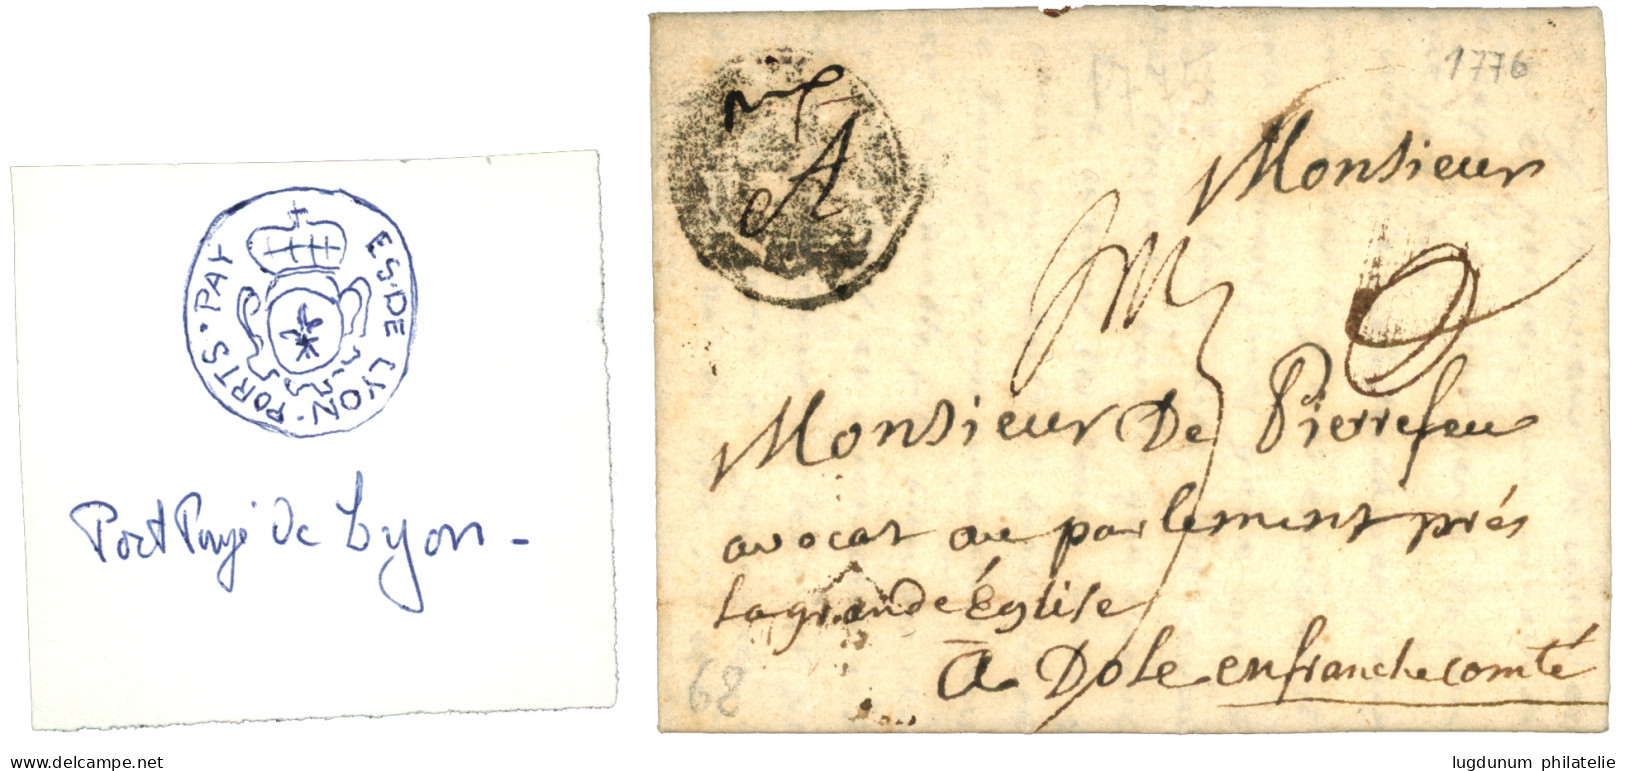 PORTS · PAY ES · DE LYON ·
Port Payé De Lyon -
1776
A
Monsieur
Monsieur De Pierrefeu
avocat au parlement prés
La grande Église
A Dole en franche comté
68
www.delcampe.net
lugdunum philatelie